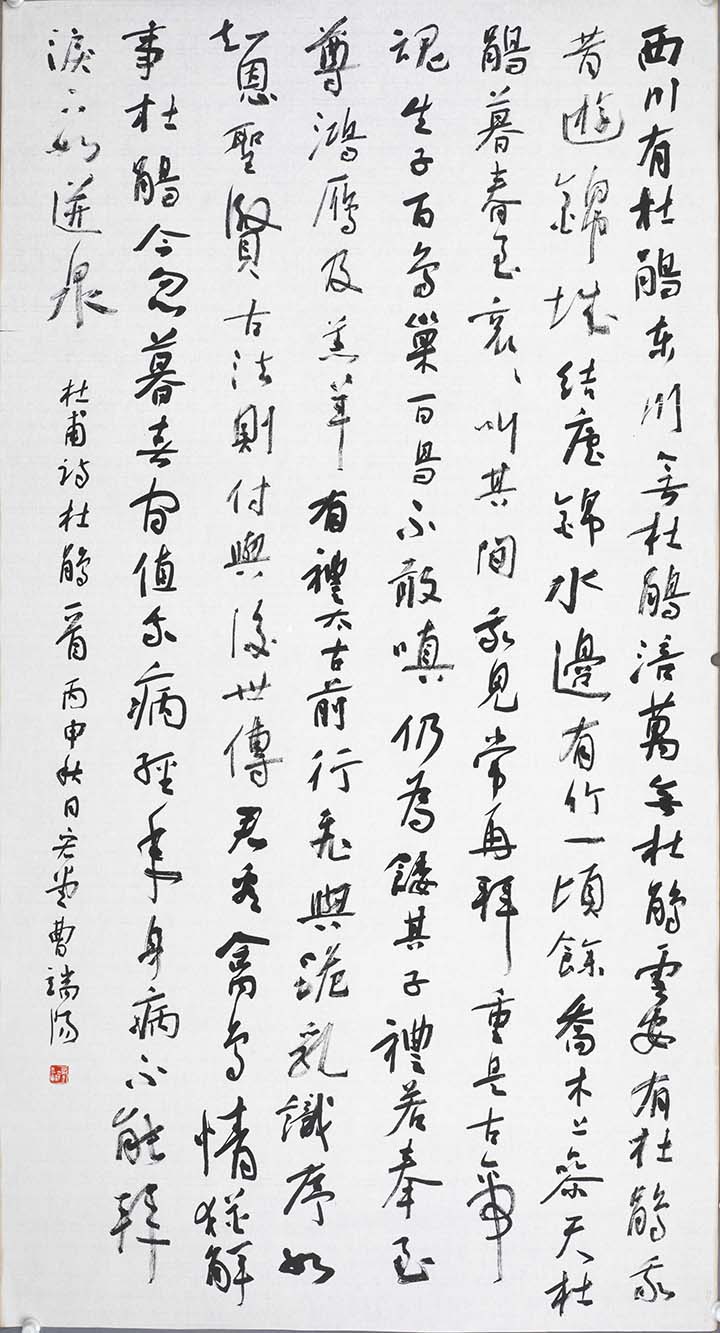 西川有杜鵑東川無杜鵑涪萬無杜鵑雲安有杜鵑我
昔遊錦城結廬錦水邊有竹一頃餘喬木上參天杜
鵑暮春至哀〻叫其間我見常再拜重是古帝
魂生子百鳥巢百鳥不敢嗔仍為餧其子禮若奉至
尊鴻雁及羔羊有禮太古前行飛與跪乳識序如
知恩聖賢古法則付與後世傳君看禽鳥情猶解
事杜鵑今忽暮春間值我病經年身病不能拜
淚下如迸泉
杜甫詩杜鵑一首丙申秋日曹端陽